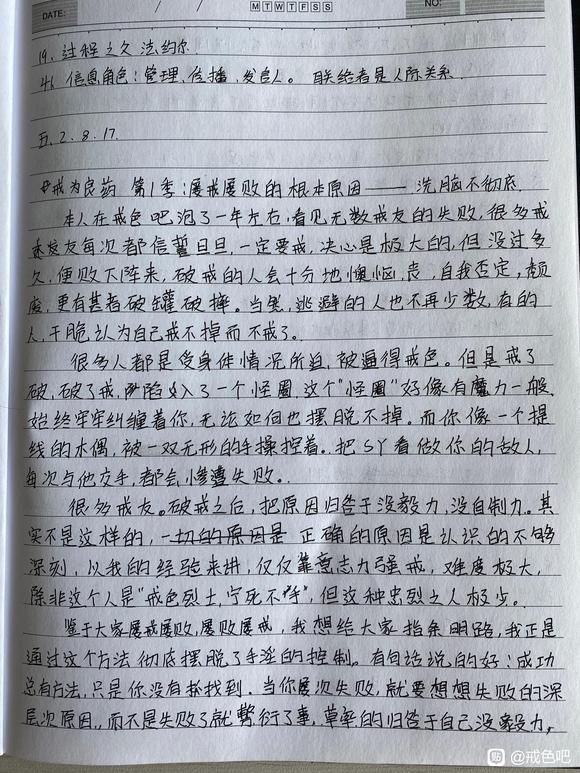 DATE: / / M T W T F S S NO:
19、过程之久 法约尔
46 信息角色：管理、传播、发言人。 联络者是人际关系
五、2、8、17、
戒为良药 第1季：屡戒屡败的根本原因——洗脑不彻底
本人在戒色吧泡了一年左右，看见无数戒友的失败，很多戒
友每次都信誓旦旦，一定要戒，决心是极大的，但没过多
久，便败下阵来，破戒的人会十分地懊恼，自我否定，颓
废，更有甚者破罐破摔。当然，逃避的人也不再少数，有的
人，干脆认为自己戒不掉而不戒了。
很多人都是受身体情况所迫，被逼得戒色。但是戒了
破，破了戒，陷入了一个怪圈，这个"怪圈"好像有魔力一般，
始终牢牢纠缠着你，无论如何也摆脱不掉。而你像一个提
线的木偶，被一双无形的手操控着。把SY看做你的敌人，
每次与他交手，都会惨遭失败。
很多戒友。破戒之后，把原因归咎于没毅力，没自制力。其
实不是这样的，一切的原因是 正确的原因是认识的不够
深刻，以我的经验来讲，仅仅靠意志力强戒，难度极大，
除非这个人是"戒色烈士，宁死不'手'"，但这种忠烈之人极少。
鉴于大家屡戒屡败，屡败屡戒，我想给大家指条明路，我正是
通过这个方法彻底摆脱了手淫的控制。有句话说的好：成功
总有方法，只是你没有找到。当你屡次失败，就要想想失败的深
层次原因，而不是失败了就敷衍了事，草率的归咎于自己没毅力，
贴 @戒色吧